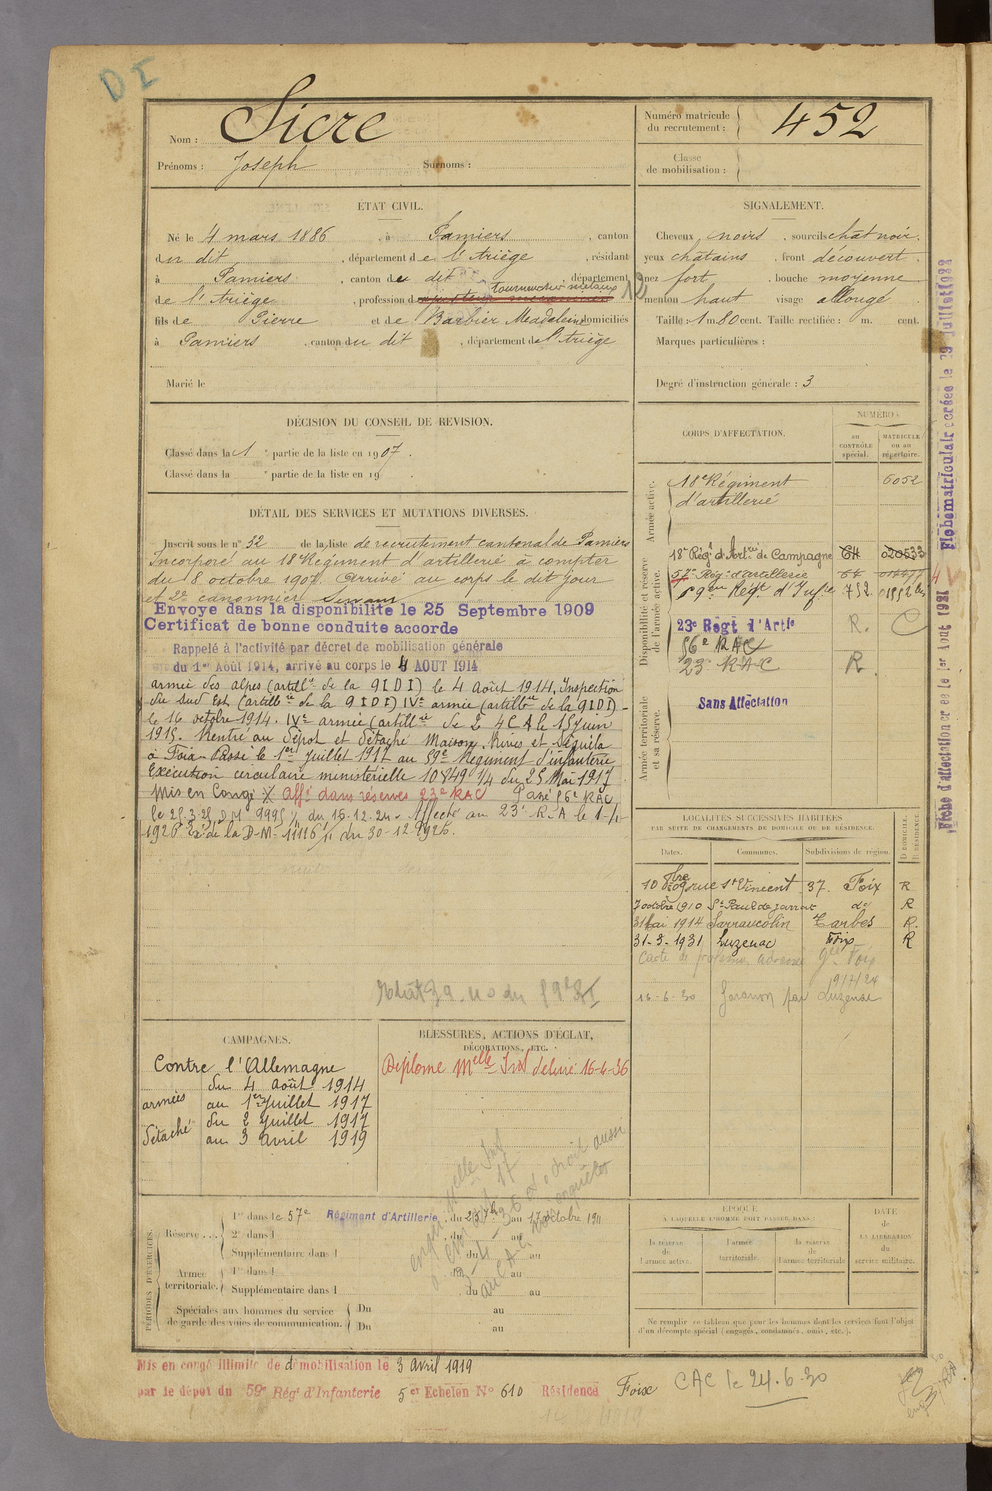 D I
Nom : Sicre
Prénoms : Joseph Surnoms :
Numéro matricule du recrutement : 452
Classe de mobilisation :
ETAT CIVIL.
Né le 4 mars 1886, à Pamiers, canton
du dit, département de l'Ariège, résidant
à Pamiers, canton du dit, département
de l'Ariège, profession d tourneur sur métaux 12
fils de Pierre et de Barbier Madeleine domiciliés
à Pamiers, canton du dit, département de l'Ariège
Marié le
SIGNALEMENT.
Cheveux noirs, sourcils chat noir.
yeux chatains, front découvert
nez fort, bouche moyenne
menton haut visage allongé
Taille : 1 m. 80 cent. Taille rectifiée : m. cent.
Marques particulières :
Degré d'instruction générale : 3
DÉCISION DU CONSEIL DE REVISION.
Classé dans la 1 partie de la liste en 1907.
Classé dans la partie de la liste en 19
DÉTAIL DES SERVICES ET MUTATIONS DIVERSES.
Inscrit sous le n° 32 de la liste de recrutement cantonal de Pamiers
Incorporé au 18e Régiment d'artillerie à compter
du 8 octobre 1907. Arrivé au corps le dit jour
et 2e canonnier servant
Envoye dans la disponibilite le 25 Septembre 1909
Certificat de bonne conduite accorde
Rappelé à l'activité par décret de mobilisation générale
du 1er Août 1914, arrivé au corps le 4 AOUT 1914
armée des alpes (artillie de la 91 DI) le 4 Août 1914. Inspection
du Sud Est (artillie de la 91 DI) IVe armée (artillie de la 91 DI) -
le 16 octobre 1914. IVe armée (artillie de 2 4 CA le 15 juin
1915. Rentré au dépôt et détaché Maison Mines et
à Foix. Passé le 1er Juillet 1917 au 59e Régiment d'infanterie
Exécution circulaire ministérielle 10849 1/4 du 25 Mai 1917
Mis en Congé X Affé dans réserves 23e RAC Passé 56e RAC
le 25.3.25 DM 9995 du 15.12.24. Affecté au 23e R.A le 1-4-
1926 Ex. de la D-M- 11116 du 30-12-1925.
CORPS D'AFFECTATION.
NUMÉROS
AU CONTRÔLE spécial.
MATRICULE ou au répertoire.
Armée active.
18e Régiment d'artillerie 6052
Disponibilité et réserve de l'armée active.
18e Régt d'Artie de Campagne 64 020533
57e Régt d'artillerie 64
59ème Régt d'Infie 752
23e Regt d'Artie R. C
56e RAC
23e RAC R
Armée territoriale et sa réserve.
Sans Affectation
LOCALITÉS SUCCESSIVES HABITÉES
PAR SUITE DE CHANGEMENTS DE DOMICILE OU DE RÉSIDENCE.
Dates. Communes. Subdivisions de région. D DOMICILE. R RÉSIDENCE.
10 8bre 1909 rue St Vincent 37. Foix R
7 octobre 1910 St Paul de Jarrat do R
31 Mai 1914 Sarrancolin Tarbes R.
31-3-1931 Luzenac Foix R
Carte de
16-6-30 Garanou par Luzenac
CAMPAGNES.
Contre l'Allemagne
armées du 4 août 1914
au 1er Juillet 1917
Détaché du 2 Juillet 1917
au 3 avril 1919
BLESSURES, ACTIONS D'ÉCLAT,
DÉCORATIONS, ETC.
Diplome Melle Ind delivré 16-4-36
PÉRIODES D'EXERCICES.
Réserve.... 1re dans le 57e Régiment d'Artillerie, du 25 au 17 octobre 1911
2e dans l du au
Supplémentaire dans l du au
Armée territoriale. 1re dans l du au
Supplémentaire dans l du au
Spéciales aux hommes du service de garde des voies de communication. Du au
Du au
EPOQUE
A LAQUELLE L'HOMME DOIT PASSER DANS :
la réserve de l'armée active.
l'armée territoriale.
la réserve de l'armée territoriale
DATE de LA LIBÉRATION du service militaire.
Ne remplir ce tableau que pour les hommes dont les services font l'objet
d'un décompte spécial (engagés, condamnés, omis, etc.).
Mis en congé illimité de démobilisation le 3 avril 1919
par le dépôt du 59e Rég. d'Infanterie 5er Echelon No 610 Résidence Foix
CAC le 24.6.30
Fiche d'affectation crée le 1er Aout 1921
Fiche matriculaire créée le 29 juillet 1922